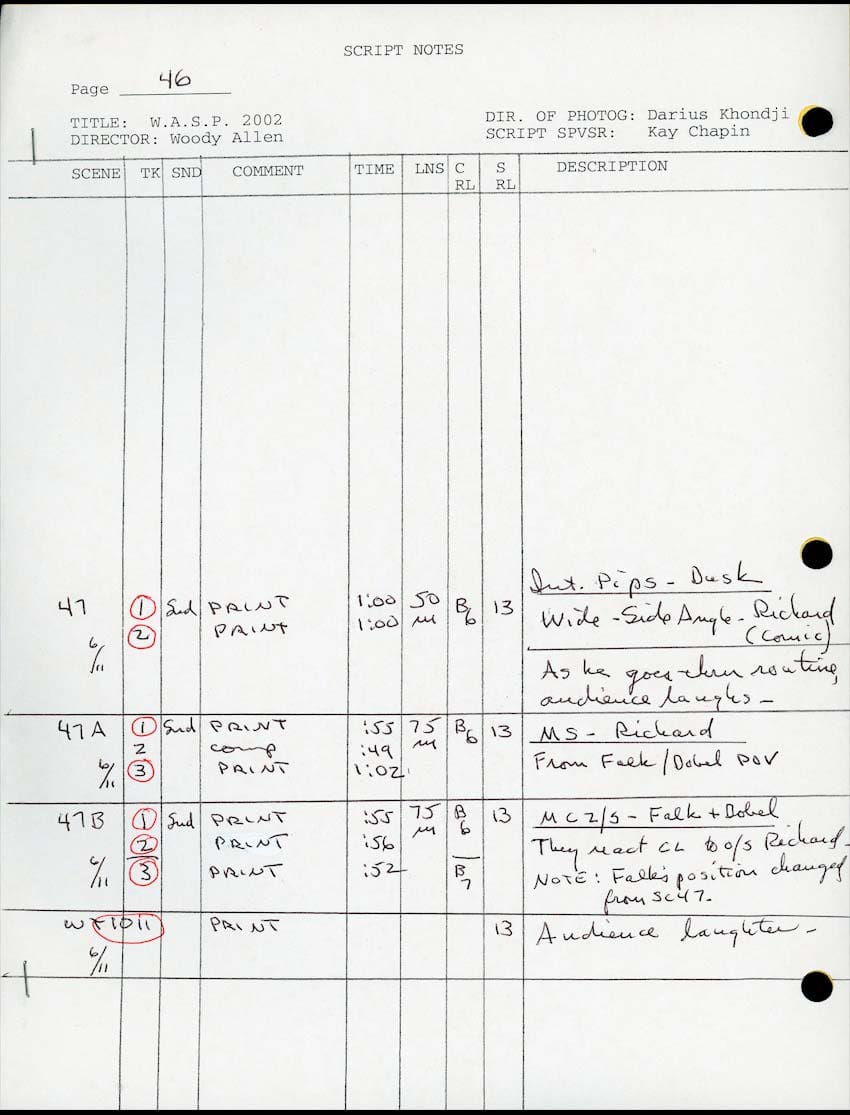 SCRIPT NOTES
Page 46
TITLE: W.A.S.P. 2002
DIR. OF PHOTOG: Darius Khondji
DIRECTOR: Woody Allen
SCRIPT SPVSR: Kay Chapin
SCENE TK SND COMMENT TIME LNS C RL S RL DESCRIPTION
Int. Pips - Dusk
47 1 Snd PRINT 1:00 50 B6 13 Wide - Side Angle - Richard
2 PRINT 1:00 m (Comic)
6/11 As he goes thru routine,
audience laughs -
47A 1 Snd PRINT :55 75 B6 13 MS - Richard
2 comp :49 m
6/11 3 PRINT 1:02 From Falk/Dobel POV
47B 1 Snd PRINT :55 75 B6 13 MC2/S - Falk + Dobel
2 PRINT :56 m They react CL to o/s Richard -
6/11 3 PRINT :52 B7 NOTE: Falk's position changed
from SC47.
WT1011 PRINT 13 Audience laughter -
6/11